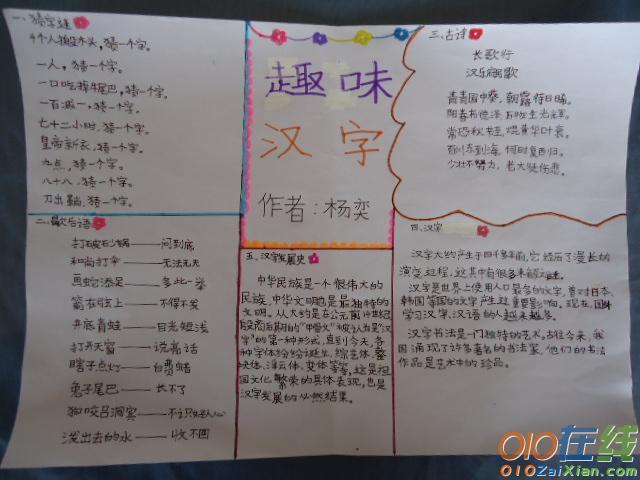 一、猜字谜
4个人搬木头,猜一个字。
一人,猜一个字。
一口吃掉牛尾巴,猜一个字。
一百减一,猜一个字。
七十二小时,猜一个字。
皇帝新衣,猜一个字。
九点,猜一个字。
八十八,猜一个字。
刀出鞘,猜一个字。
二、歇后语
打破砂锅——问到底
和尚打伞——无法无天
画蛇添足——多此一举
箭在弦上——不得不发
井底青蛙——目光短浅
打开天窗——说亮话
瞎子点灯——白费蜡
兔子尾巴——长不了
狗咬吕洞宾——不识好人心
泼出去的水——收不回
趣味
汉字
作者:杨奕
五、汉字发展史
中华民族是一个很伟大的
民族,中华文明也是最独特的
文明。从大约是在公元前14世纪
殷商后期的“甲骨文”被认为是“汉
字”的第一种形式,直到今天,各
种字体纷纷诞生,综艺体、整
块体、浮云体、变体等等,这是祖
国文化繁荣的具体表现,也是
汉字发展的必然结果。
三、古诗
长歌行
汉乐府歌
青青园中葵,朝露待日晞。
阳春布德泽,万物生光辉。
常恐秋节至,焜黄华叶衰。
百川东到海,何时复西归。
少壮不努力,老大徒伤悲
四、汉字
汉字大约产生于四千多年前,它经历了漫长的
演变过程,这其中有很多未解之谜。
汉字是世界上使用人口最多的文字,曾对日本、
韩国等国的文字产生过重要影响。现在,国外
学习汉字、汉语的人越来越多。
汉字书法是一门独特的艺术,古往今来,我
国涌现了许多著名的书法家,他们的书法
作品是艺术中的珍品。
010在线
010ZaiXian.com